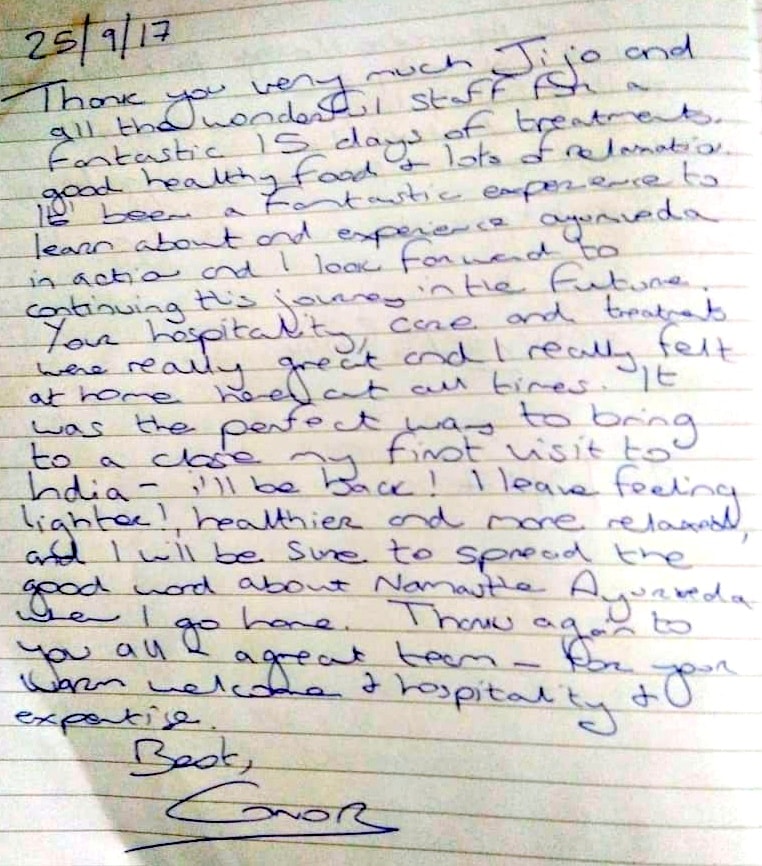 25/9/17
Thank you very much Jijo and
all the wonderful staff for a
fantastic 15 days of treatments.
good healthy food & lots of relaxation.
It's been a fantastic experience to
learn about and experience ayurveda
in action and I look forward to
continuing this journey in the future.
Your hospitality, care and treatments
were really great and I really felt
at home here at all times. It
was the perfect way to bring
to a close my first visit to
India - i'll be back! I leave feeling
lighter!, healthier and more relaxed,
and I will be sure to spread the
good word about Namasthe Ayurveda
when I go home. Thank again to
you all - a great team - for your
warm welcome & hospitality &
expertise.
Best,
Conor